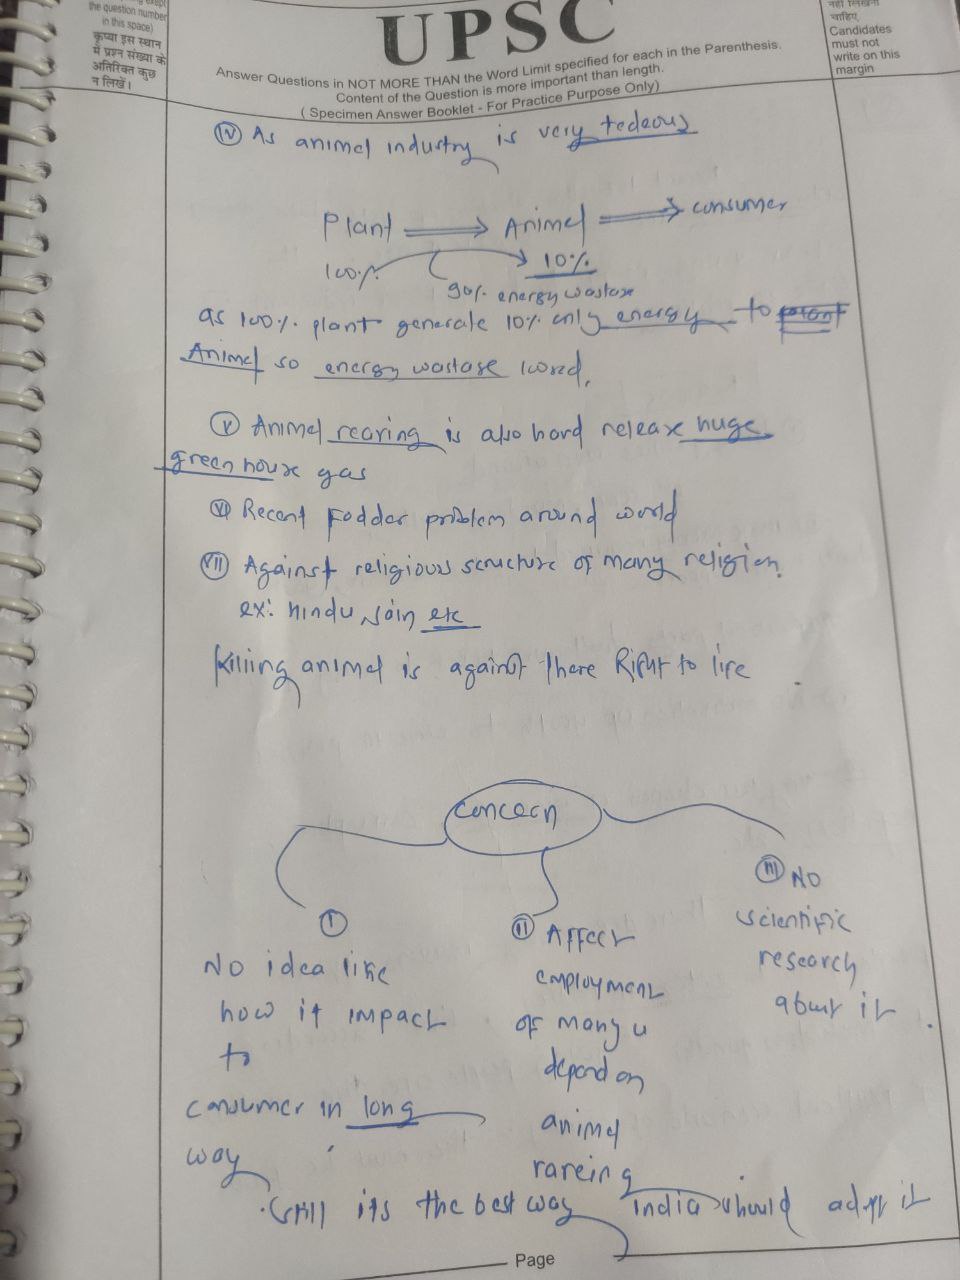 the question number
in this space)
कृप्या इस स्थान
में प्रश्न संख्या के
अतिरिक्त कुछ
न लिखें।
UPSC
Answer Questions in NOT MORE THAN the Word Limit specified for each in the Parenthesis.
Content of the Question is more important than length.
( Specimen Answer Booklet - For Practice Purpose Only)
चाहिए
Candidates
must not
write on this
margin
(iv) As animal industry is very tedeous
Plant ⟹ Animal ⟹ consumer
100% 10%
90% energy wastage
as 100% plant generate 10% only energy to
Animal so energy wastage
(v) Animal rearing is also hard release huge
green house gas
(vi) Recent Fodder problem around world
(vii) Against religious structure of many religion.
ex: hindu, Jain etc
Killing animal is against there Right to life
concern
(i)
No idea like
how it impact
to
consumer in long
way
(ii) Affect
employment
of many
depend on
animal
rareing
(iii) No
scientific
research
about it.
Still its the best way India should adopt it
Page